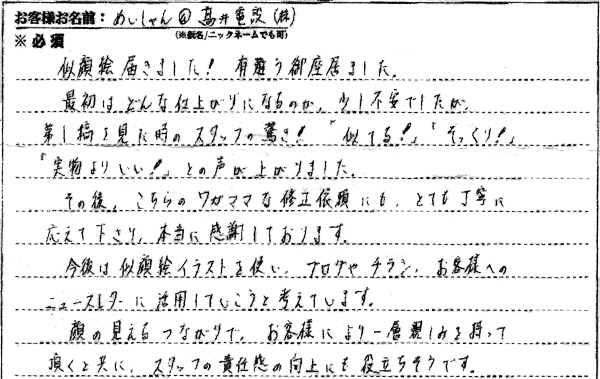 お客様お名前：めいしゃん@髙井電設(株)
※必須 (※仮名/ニックネームでも可)
似顔絵届きました！ 有難う御座居ました。
最初はどんな仕上がりになるのか、少し不安でしたが、
第1稿を見た時のスタッフの驚き！「似てる！」「そっくり！」
「実物よりいい！」との声が上がりました。
その後、こちらのワガママな修正依頼にも、とても丁寧に
応えて下さり、本当に感謝しております。
今後は似顔絵イラストを使い、ブログや チラシ、お客様への
ニュースレターに活用していこうと考えています。
顔の見えるつながりで、お客様により一層親しみを持って
頂くと共に、スタッフの責任感の向上にも役立ちそうです。